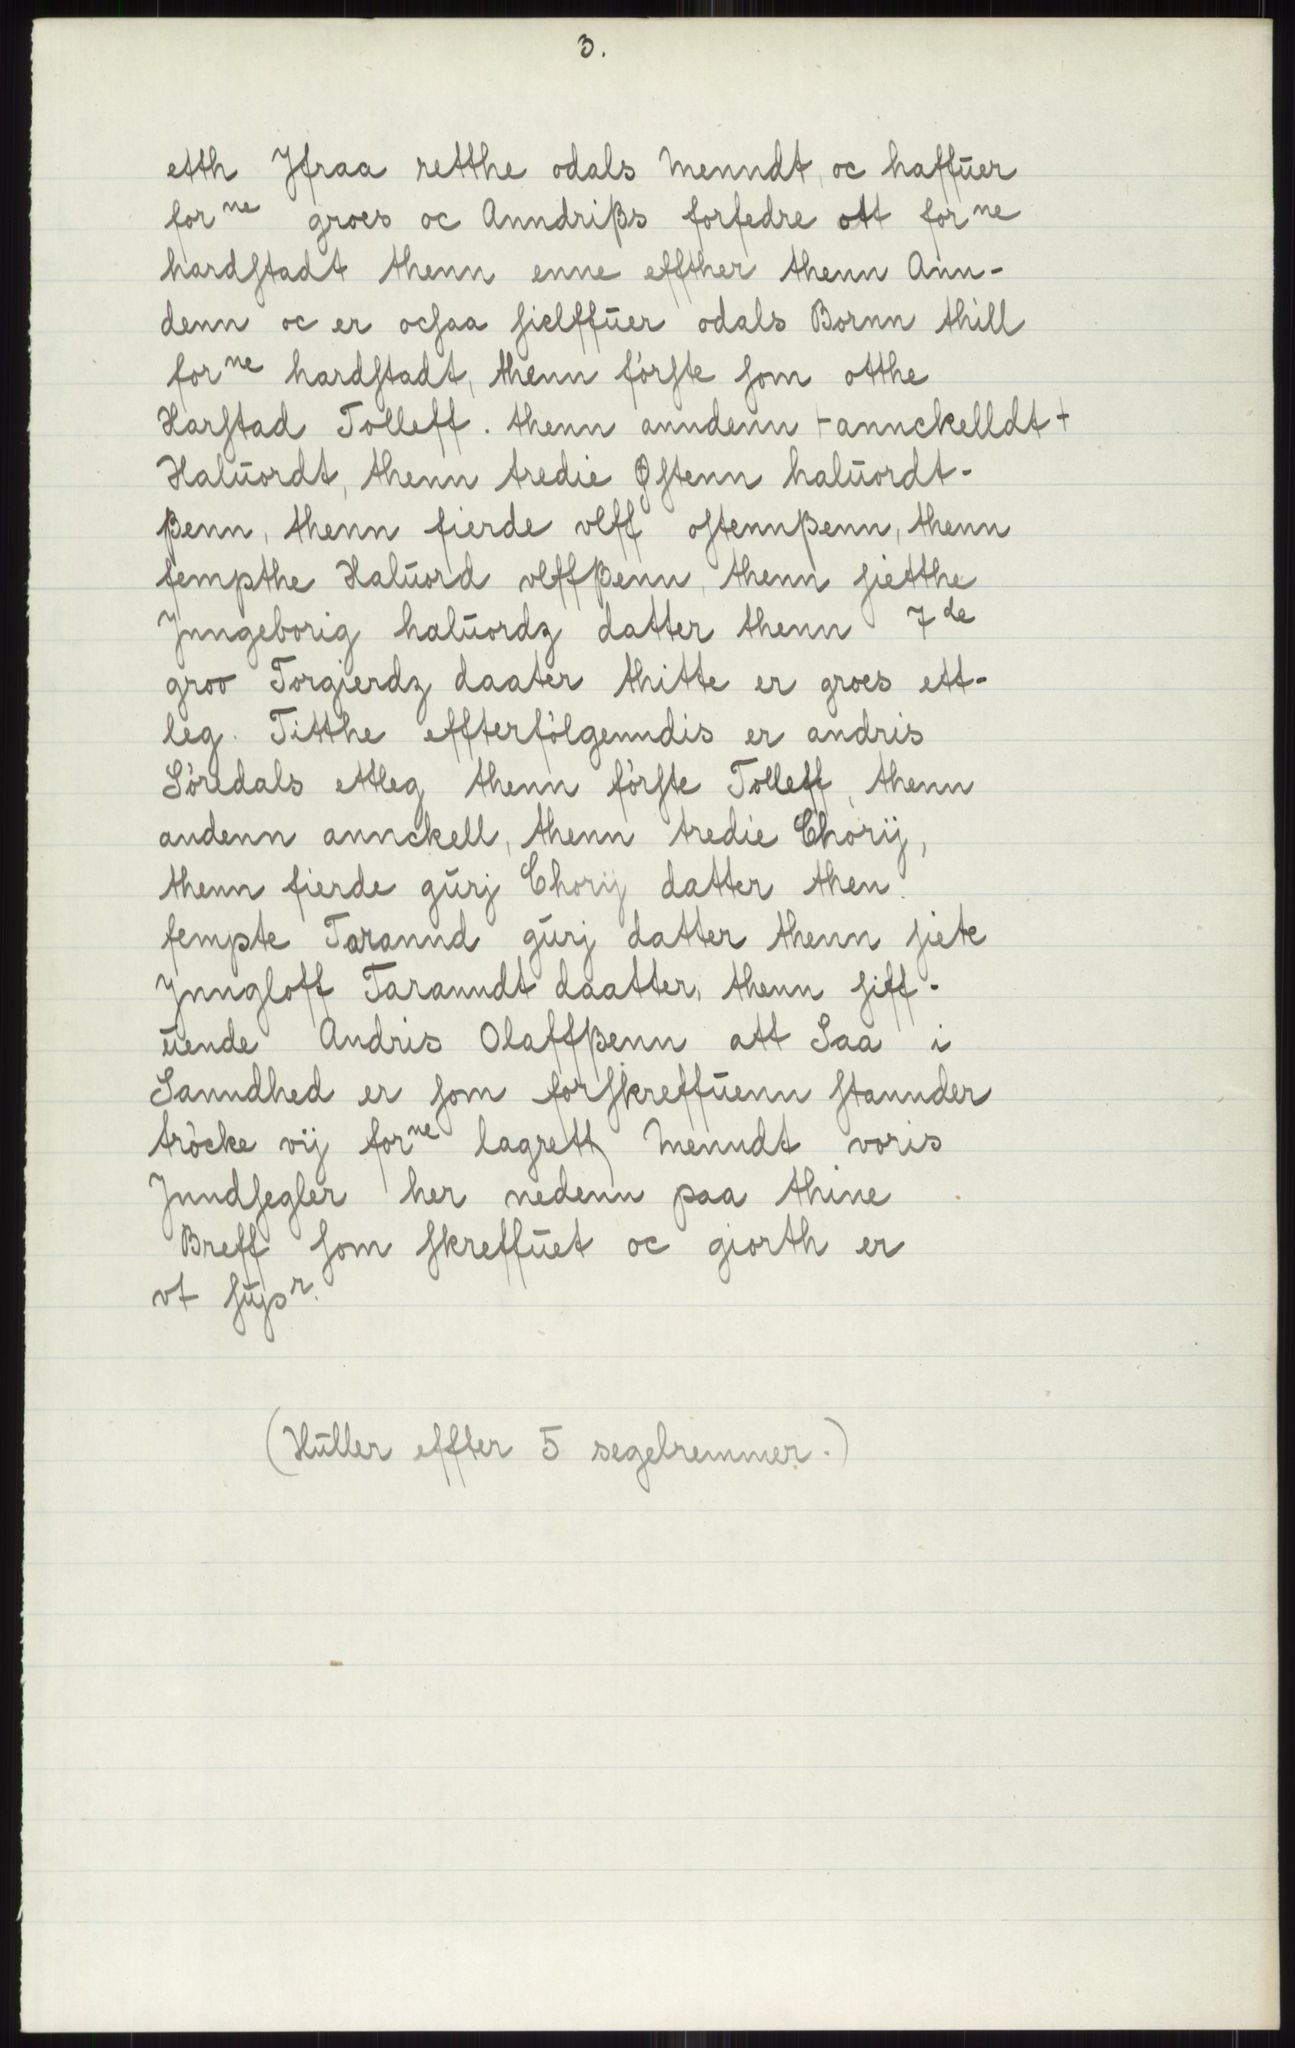 3.
etth Jfraa retthe odals Menndt, oc haffúer
for ne groes oc Anndrißs forfedre ott for ne
hardstadt thenn enne effther thenn Ann-
denn oc er ocsaa sielffúer odals Bornn thill
for ne hardstadt, thenn förste som otthe
Harstad Tolleff. thenn anndenn +annckelldt+
Halúordt, thenn tredie Østenn halúordt-
ßenn, thenn fierde vlff ostennßenn, thenn
fempthe Halúord vlffßenn, thenn sietthe
Jnngeborig halúordz datter thenn 7de
groo Torgierdz daater thitte er groes ett-
leg. Titthe effterfölgenndis er andris
Söredals ettleg thenn förste Tolleff, thenn
andenn annckell, thenn tredie Chorij,
thenn fierde gúrj Chorij datter then
fempte Torannd gúrj datter thenn siete
Jnngloff Taranndt daatter, thenn siff-
úende Andris Olaffßenn att Saa i
Sanndhed er som forskreffúenn stannder
tröcke vij for ne lagrett Menndt voris
Jnndsegler her nedenn paa thine
Breff som skreffúet oc giorth er
vt súps r.
(Húller effter 5 segelremmer.)